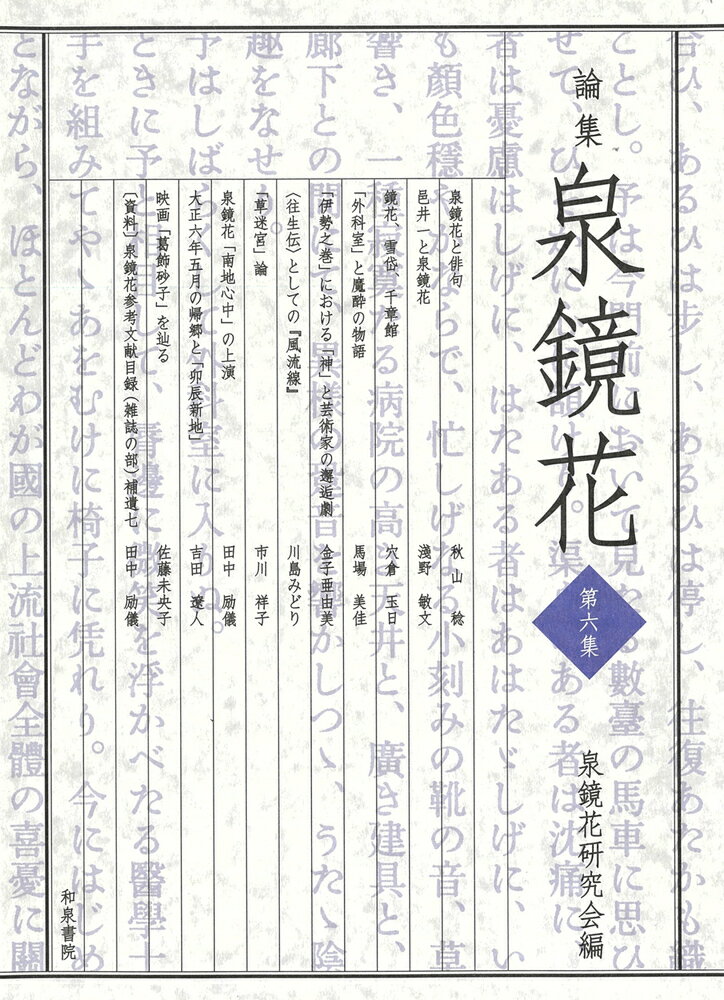 論集
泉鏡花
第六集
泉鏡花研究会編
泉鏡花と俳句 秋山 稔
邑井一と泉鏡花 淺野 敏文
鏡花、雪岱、千章館 穴倉 玉日
「外科室」と魔酔の物語 馬場 美佳
「伊勢之巻」における「神」と芸術家の邂逅劇 金子亜由美
〈往生伝〉としての『風流線』 川島みどり
「草迷宮」論 市川 祥子
泉鏡花「南地心中」の上演 田中 励儀
大正六年五月の帰郷と「卯辰新地」 吉田 遼人
映画「葛飾砂子」を辿る 佐藤未央子
〔資料〕泉鏡花参考文献目録(雑誌の部)補遺七 田中 励儀
和泉書院
合ひ、あるひは歩し、あるひは停し、往復あたかも織
ごとし。予は今門前において見たる數臺の馬車に思ひ
せて、ひそかに心に頷けり。渠等のある者は沈痛に
者は憂慮はしげに、はたある者はあはたゞしげに、い
も顏色穩ならで、忙しげなる小刻みの靴の音、草
響き、一種寂寞たる病院の高き天井と、廣き建具と、
廊下との間にて、異様の跫音を響かしつゝ、うたゝ陰
趣をなせり。
予はしば して外科室に入りぬ。
ときに予と相目して、脣邊に微笑を浮かべたる醫學士
手を組みてやゝあをむけに椅子に凭れり。今にはじめ
とながら、ほとんどわが國の上流社會全體の喜憂に關